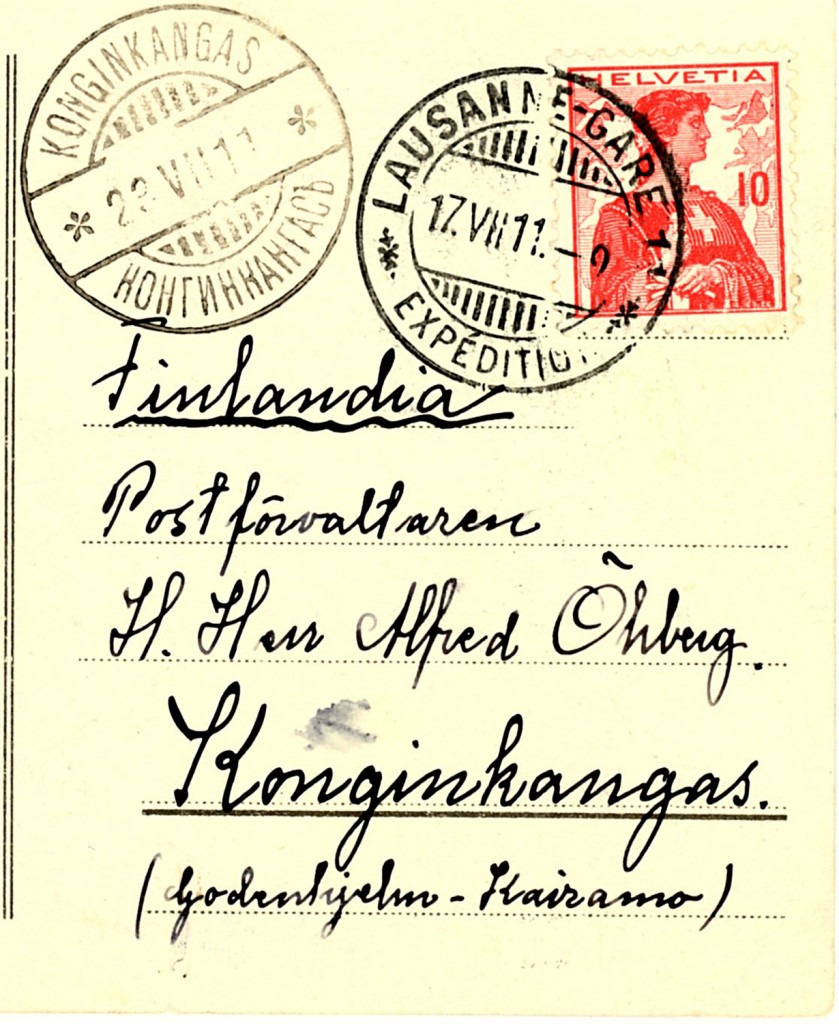 KONGINKANGAS
23 VII 11
КОНГИНКАНГАСЪ
LAUSANNE-GARE
17.VII 11. - 9
EXPÉDITION
HELVETIA
10
Finlandia
Postförvaltaren
H. Herr Alfred Öhberg.
Konginkangas.
(Godenhjelm - Kairamo)